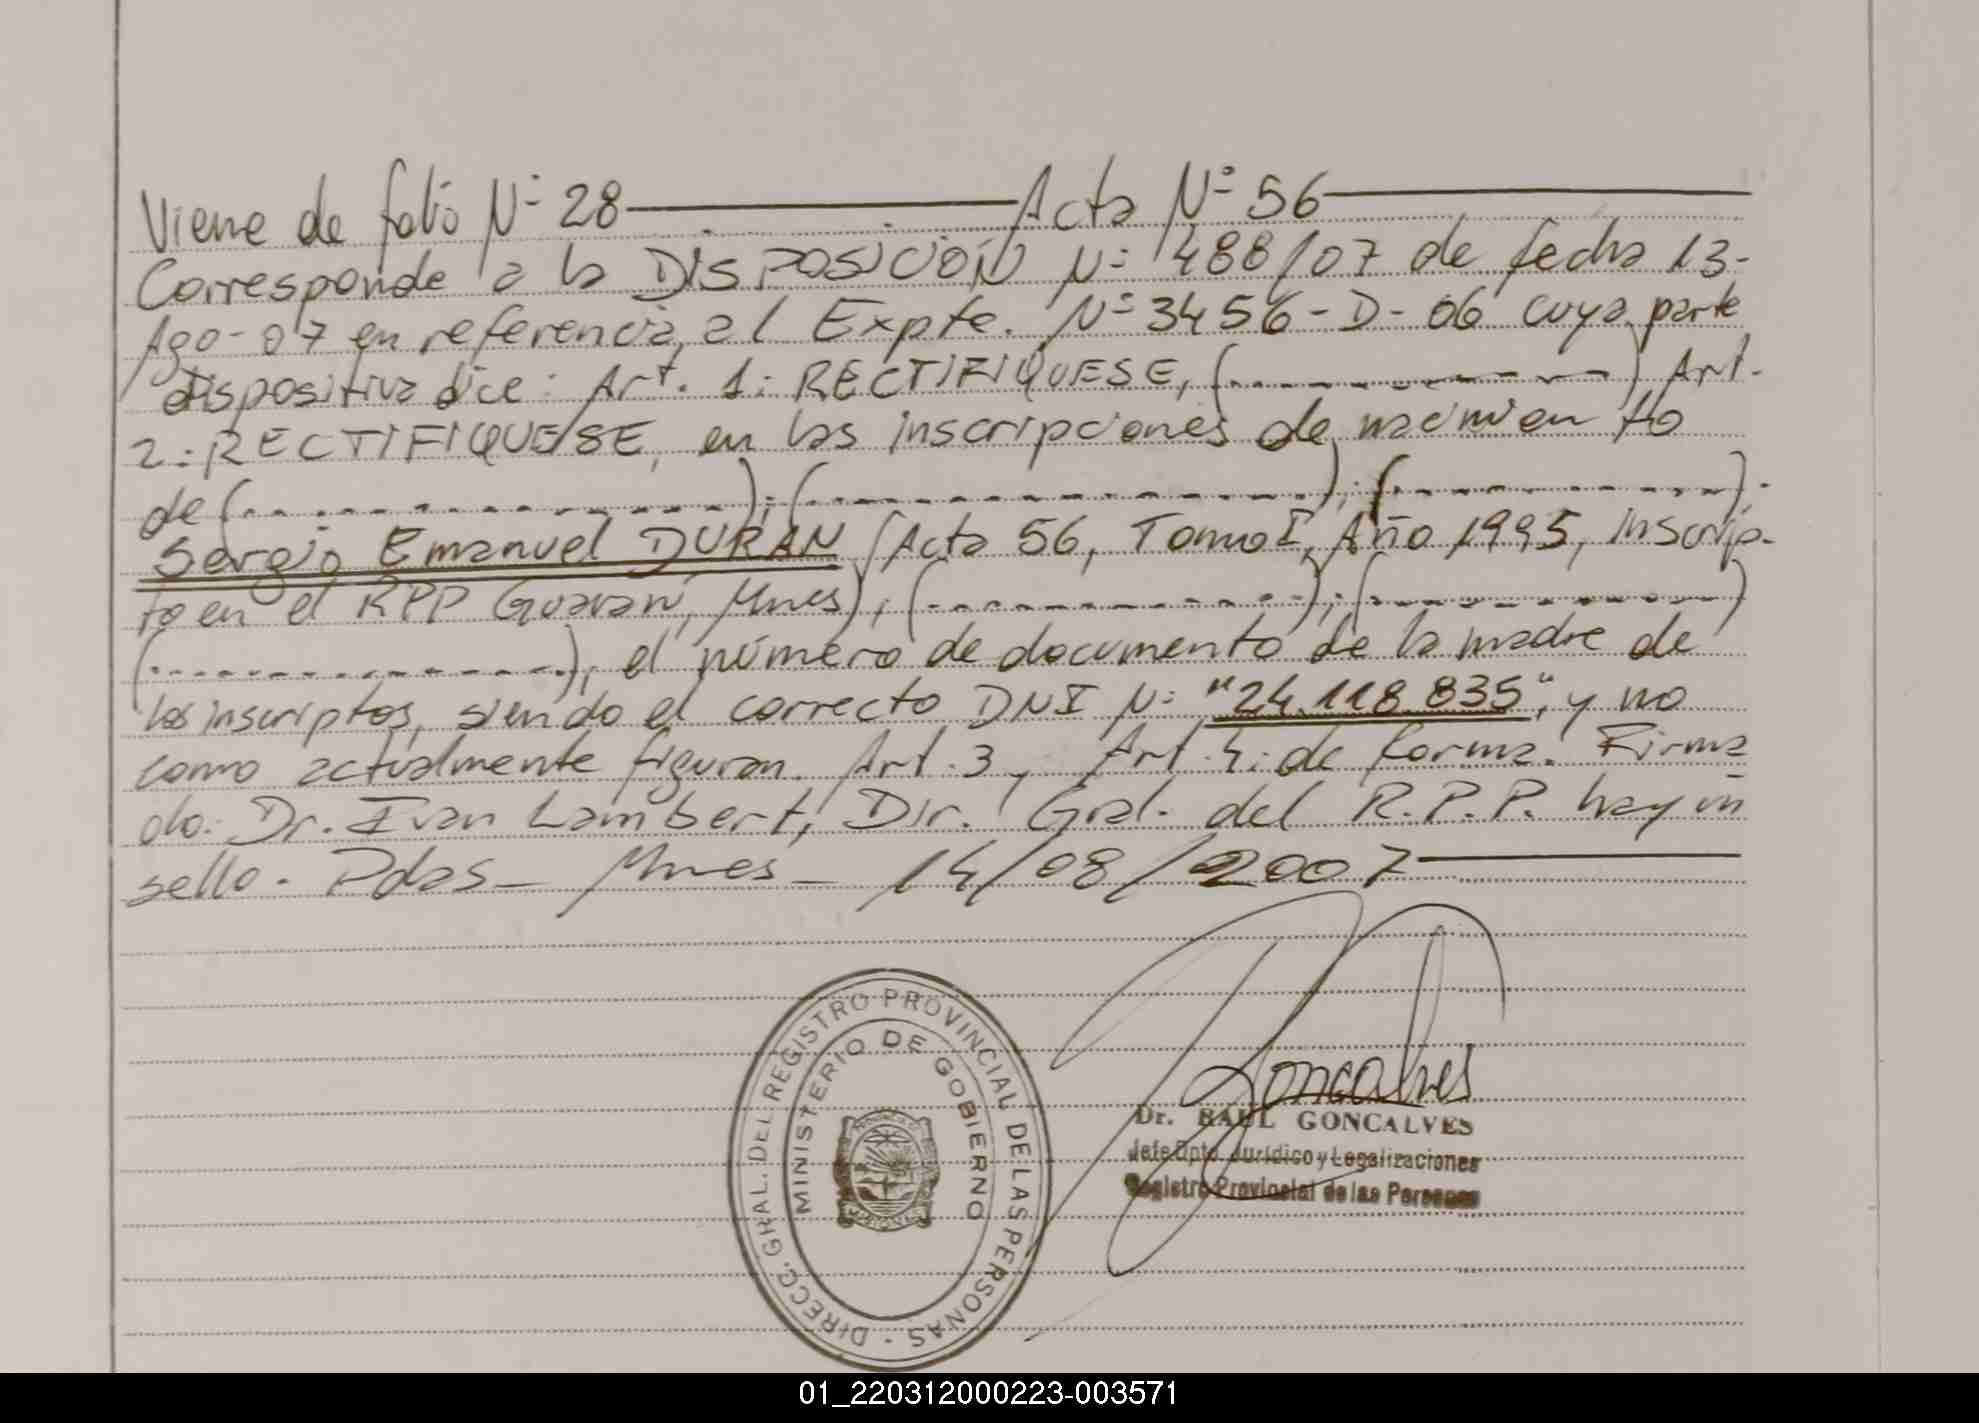 Viene de folio Nº 28 ——— Acta Nº 56 ———
Corresponde a la DISPOSICIÓN Nº 488/07 de fecha 13-
Ago-07 en referencia al Expte. Nº 3456-D-06 cuya parte
dispositiva dice: Art. 1: RECTIFIQUESE, (------------) Art.
2: RECTIFIQUESE, en las inscripciones de nacimiento
de (------------); (------------); (------------).
Sergio Emanuel DURAN (Acta 56, Tomo I, Año 1995, inscrip-
to en el RPP Guaraní, Mnes); (------------); (------------)
(------------), el número de documento de la madre de
los inscriptos, siendo el correcto DNI Nº "24.118.835", y no
como actualmente figuran. Art. 3 y Art. 4: de forma. Firma
do: Dr. Ivan Lambert, Dir. Gral. del R.P.P. hay un
sello. Pdas - Mnes - 14/08/2007 ———
DIRECC. GRAL. DEL REGISTRO PROVINCIAL DE LAS PERSONAS -
MINISTERIO DE GOBIERNO
Goncalves
Dr. RAUL GONCALVES
Jefe Dpto. Jurídico y Legalizaciones
Registro Provincial de las Personas
01_220312000223-003571